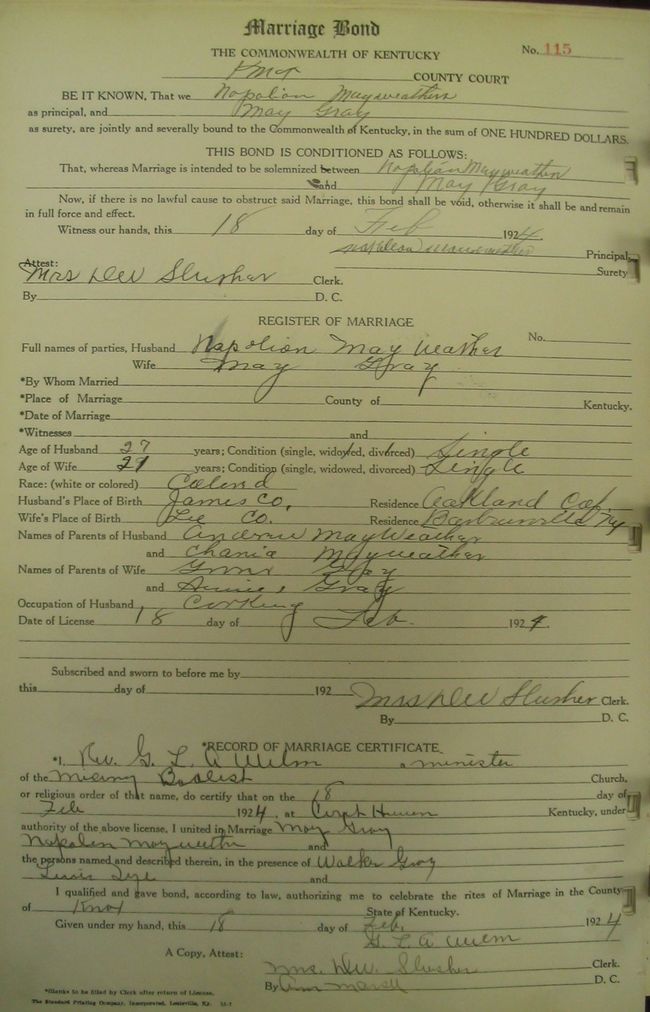 Marriage Bond
THE COMMONWEALTH OF KENTUCKY No. 115
Knox COUNTY COURT
BE IT KNOWN, That we Napolian Mayweathers
as principal, and May Gray
as surety, are jointly and severally bound to the Commonwealth of Kentucky, in the sum of ONE HUNDRED DOLLARS.
THIS BOND IS CONDITIONED AS FOLLOWS:
That, whereas Marriage is intended to be solemnized between Napolian Mayweathers
and May Gray
Now, if there is no lawful cause to obstruct said Marriage, this bond shall be void, otherwise it shall be and remain
in full force and effect.
Witness our hands, this 18 day of Feb 1924.
Principal,
Attest: Surety
Mrs DW Slusher Clerk.
By D. C.
REGISTER OF MARRIAGE
Full names of parties, Husband Napolian May Weather No.
Wife May Gray
*By Whom Married
*Place of Marriage County of Kentucky.
*Date of Marriage
*Witnesses and
Age of Husband 27 years; Condition (single, widowed, divorced) Single
Age of Wife 21 years; Condition (single, widowed, divorced) Single
Race: (white or colored) Colerd
Husband's Place of Birth James Co. Residence Oakland Cal.
Wife's Place of Birth Lee Co. Residence Barbourville Ky
Names of Parents of Husband Andrew MayWeather
and Mayweather
Names of Parents of Wife Gray
and Gray
Occupation of Husband Cooking
Date of License 18 day of Feb. 1924.
Subscribed and sworn to before me by
this day of 192 Mrs DW Slusher Clerk.
By D. C.
*RECORD OF MARRIAGE CERTIFICATE
*I, Rev. G. L. A a minister
of the Baptist Church,
or religious order of that name, do certify that on the 18 day of
Feb 1924, at Kentucky, under
authority of the above license, I united in Marriage May Gray
Napolian Mayweather and
the persons named and described therein, in the presence of Walker Gray
Lewis and
I qualified and gave bond, according to law, authorizing me to celebrate the rites of Marriage in the County
of Knox State of Kentucky.
Given under my hand, this 18 day of Feb. 1924
G. L. A
A Copy, Attest: Mrs. DW. Slusher Clerk.
By D. C.
*Blanks to be filled by Clerk after return of License.
The Standard Printing Company, Incorporated, Louisville, Ky.